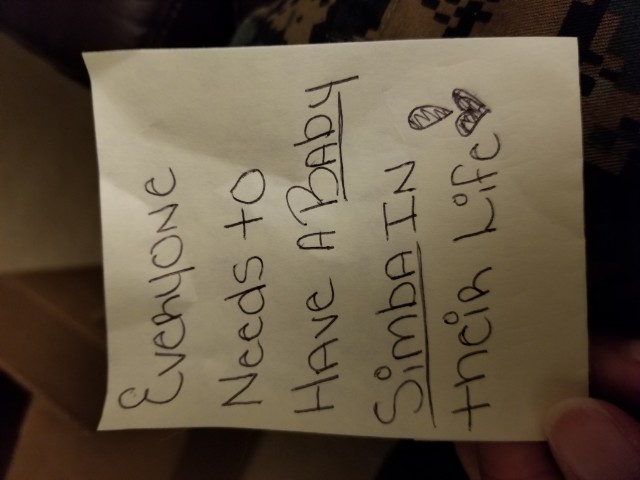 EveryONe
Needs to
HAve A BAby
SimbA IN
their Life